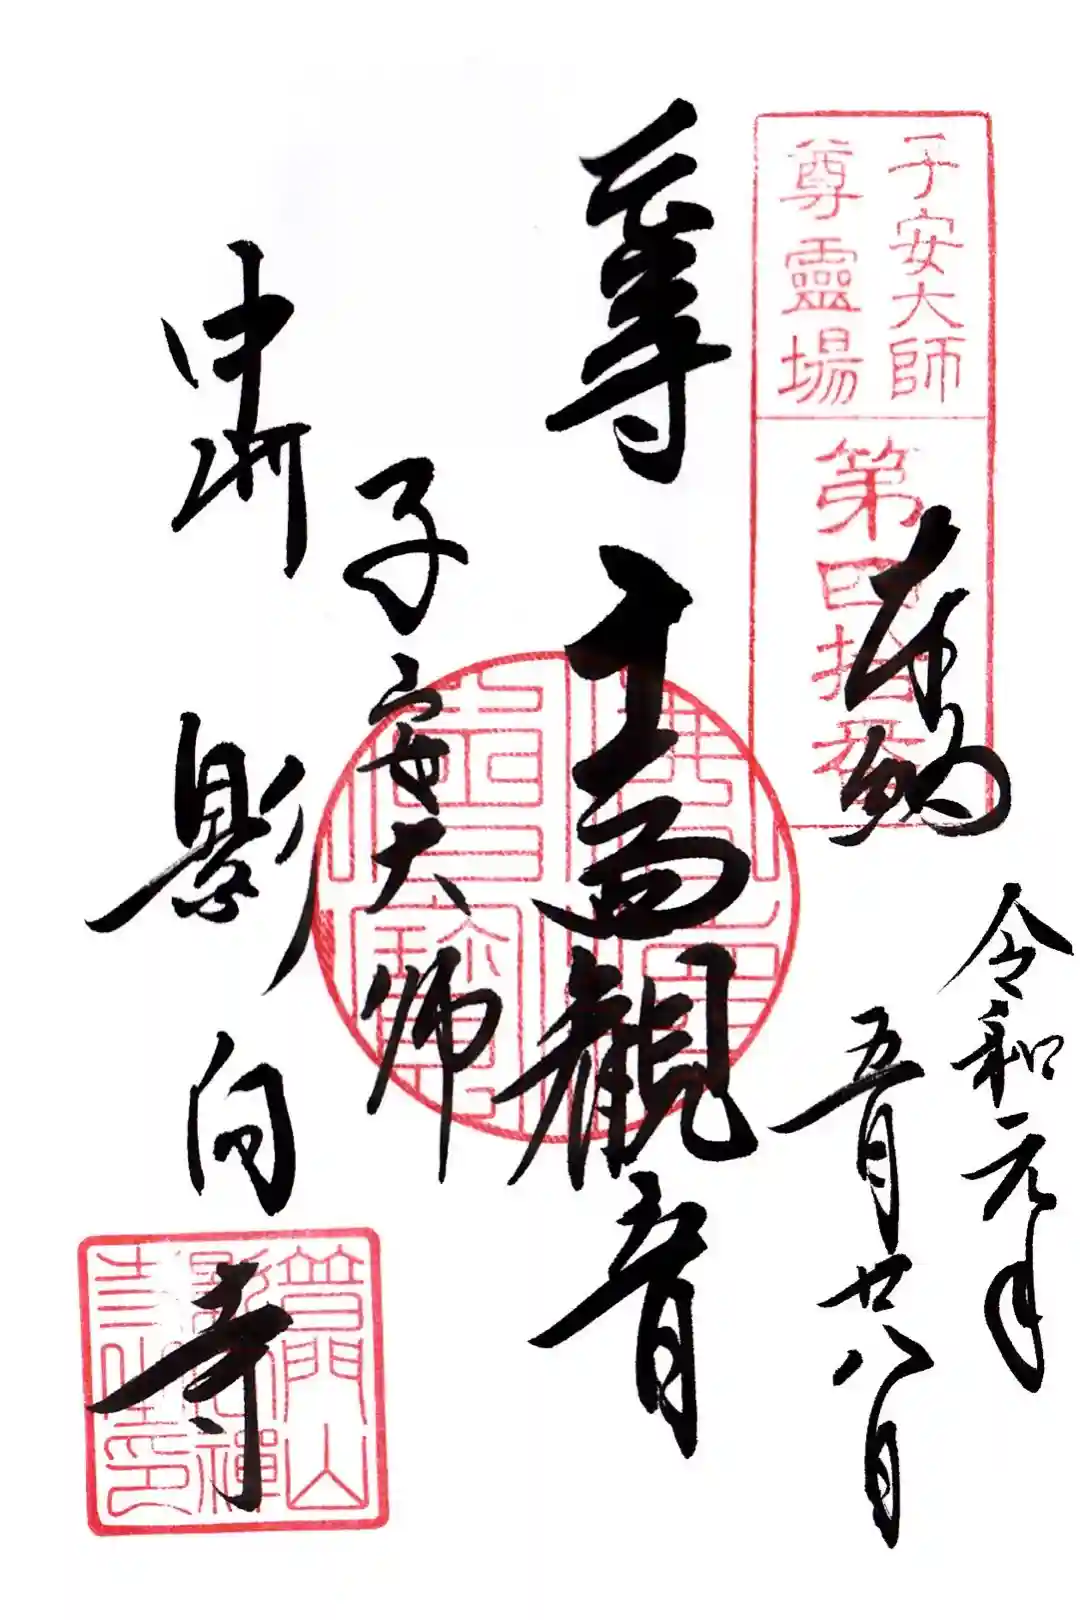 子安大師
尊靈場
第四拾番
奉納
令和元年
五月廿八日
本尊
十一面觀音
子安大師
中洲
影向寺
普門山
影向禪
寺之印